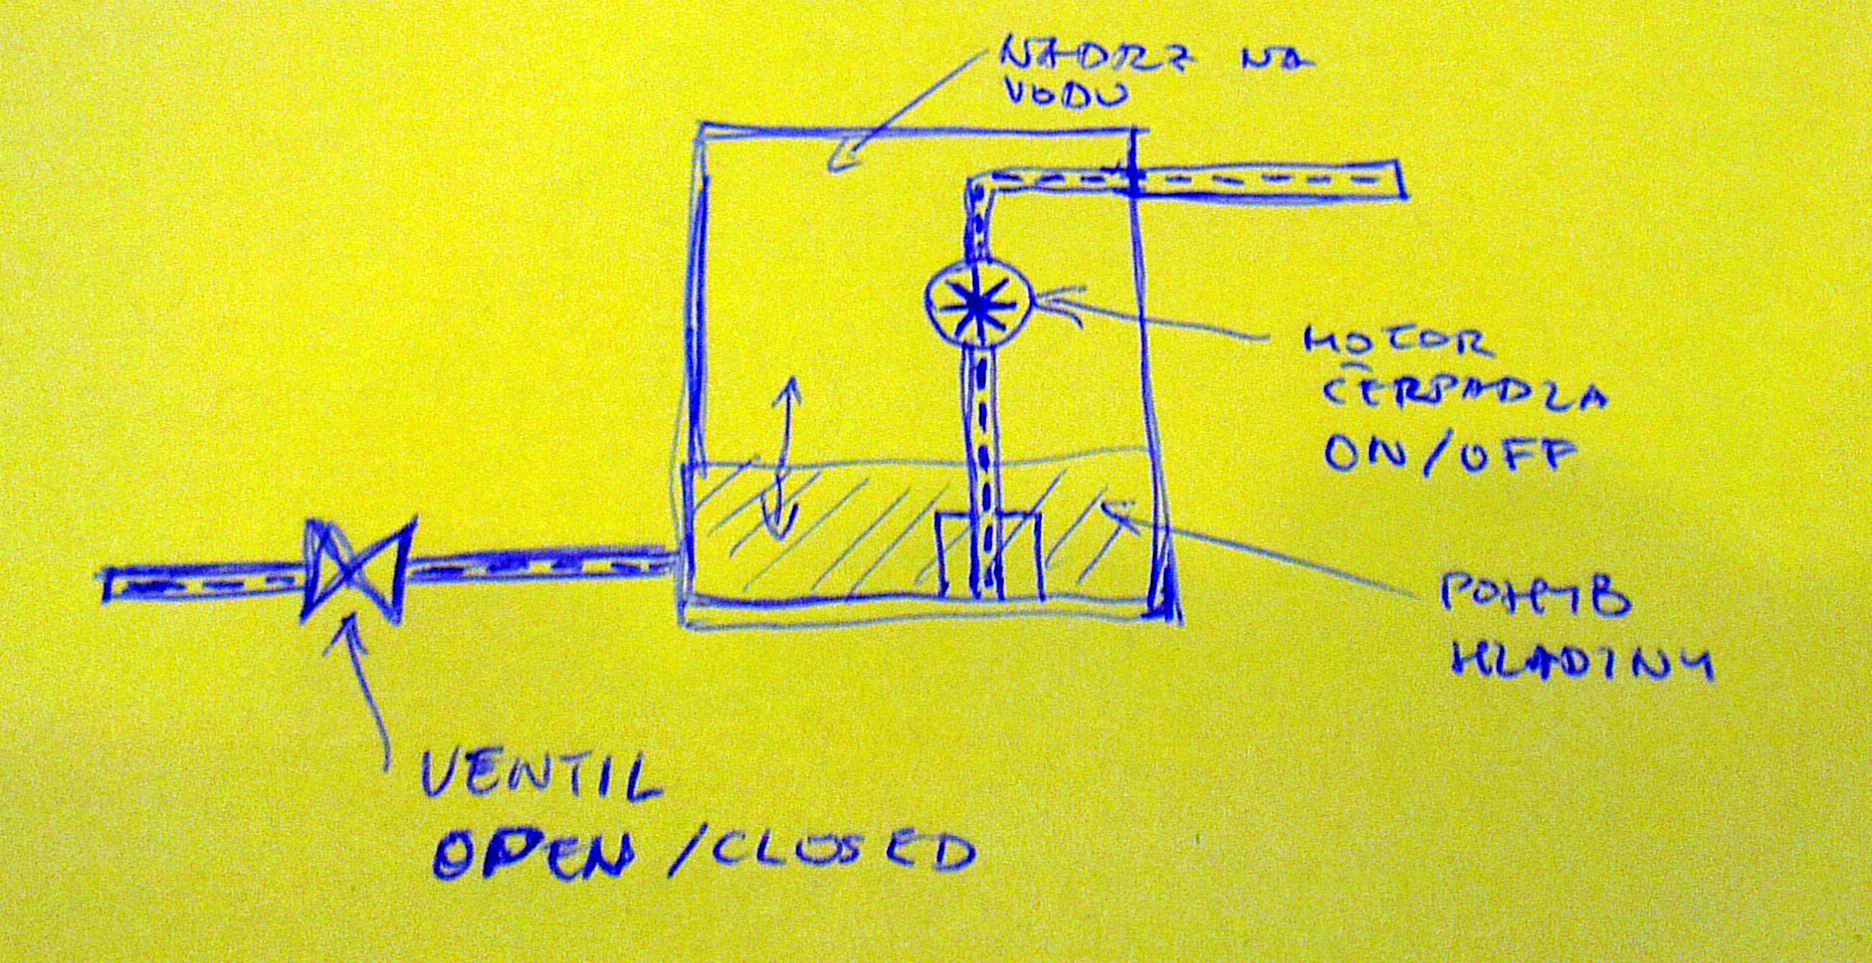 NADRZ NA
VODU
MOTOR
ČERPADLA
ON/OFF
POHYB
HLADINY
VENTIL
OPEN/CLOSED